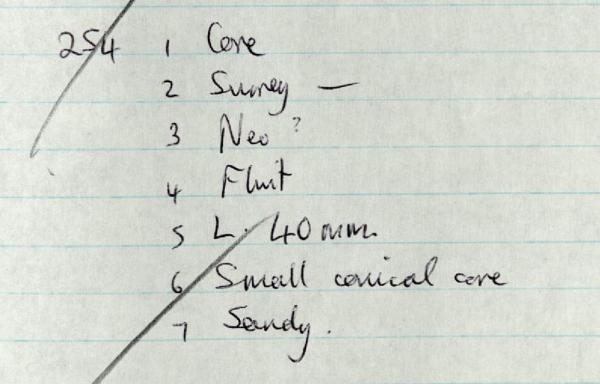 254 1 Core
2 Surrey —
3 Neo ?
4 Flint
5 L. 40 mm.
6 Small conical core
7 Sandy.